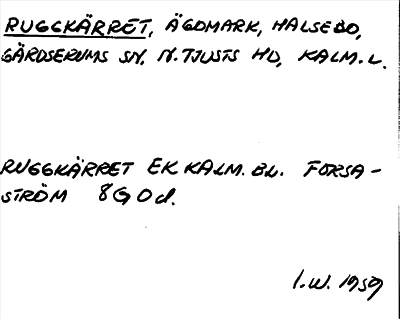 RUGGKÄRRET, ÄGOMARK, HALSEBO,
GÄRDSERUMS SN, N. TJUSTS HD, KALM. L.
RUGGKÄRRET EK KALM. BL. FORSA-
STRÖM 8G 0d.
I.W. 1959